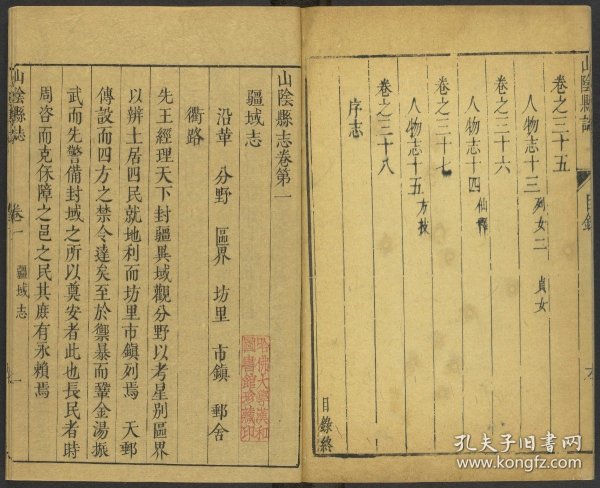 山陰縣誌
目錄
卷之三十五
人物志十三 列女二 貞女
卷之三十六
人物志十四 仙釋
卷之三十七
人物志十五 方技
卷之三十八
序志
目錄終
山陰縣志卷第一
疆域志
沿革 分野 區界 坊里 市鎮 郵舍
衢路
先王經理天下封疆異域觀分野以考星別區界
以辨土居四民就地利而坊里市鎮列焉 天郵
傳設而四方之禁令達矣至於禦暴而鞏金湯振
武而先警備封域之所以奠安者此也長民者時
周咨而克保障之邑之民其庶有永賴焉
山陰縣志 卷一 疆域志 一
哈佛大學漢和
圖書館珍藏印
孔夫子旧书网
www.kongfz.com